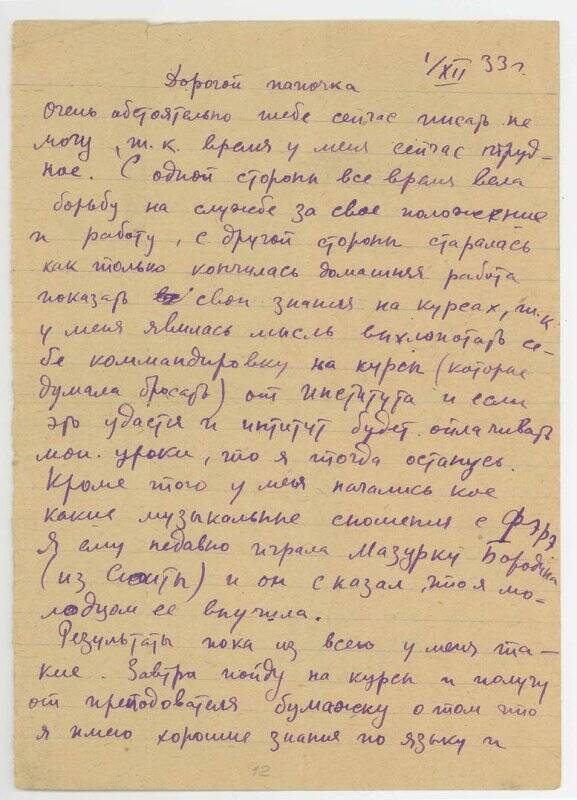 1/XII 33 г.
Дорогой папочка
Очень обстоятельно тебе сейчас писать не
могу, т.к. время у меня сейчас труд-
ное. С одной стороны все время вела
борьбу на службе за свое положение
и работу, с другой стороны старалась
как только кончилась домашняя работа
показать свои знания на курсах, т.к.
у меня явилась мысль выхлопотать се-
бе коммандировку на курсы (которые
думала бросать) от института и если
это удастся и интитут будет оплачивать
мои уроки, то я тогда останусь.
Кроме того у меня начались кое
какие музыкальные сношения с Фэрэ
Я ему недавно играла Мазурку Бородина
(из Сюиты) и он сказал, что я мо-
лодцом ее выучила.
Результаты пока из всего у меня та-
кие. Завтра пойду на курсы и получу
от преподователя бумажку о том что
я имею хорошие знания по языку и
12